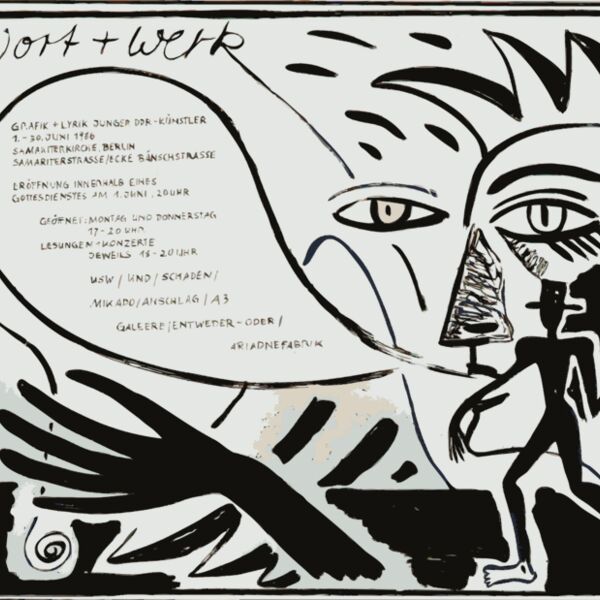 Wort + Werk
GRAFIK + LYRIK JUNGER DDR-KÜNSTLER
1. - 30. JUNI 1986
SAMARITERKIRCHE, BERLIN
SAMARITERSTRASSE/ECKE BÄNSCHSTRASSE
ERÖFFNUNG INNERHALB EINES
GOTTESDIENSTES AM 1. JUNI, 20 UHR
GEÖFFNET: MONTAG UND DONNERSTAG
17-20 UHR
LESUNGEN + KONZERTE
JEWEILS 18-20 UHR
USW / UND / SCHADEN /
MIKADO / ANSCHLAG / A3
GALEERE / ENTWEDER-ODER /
ARIADNEFABRIK